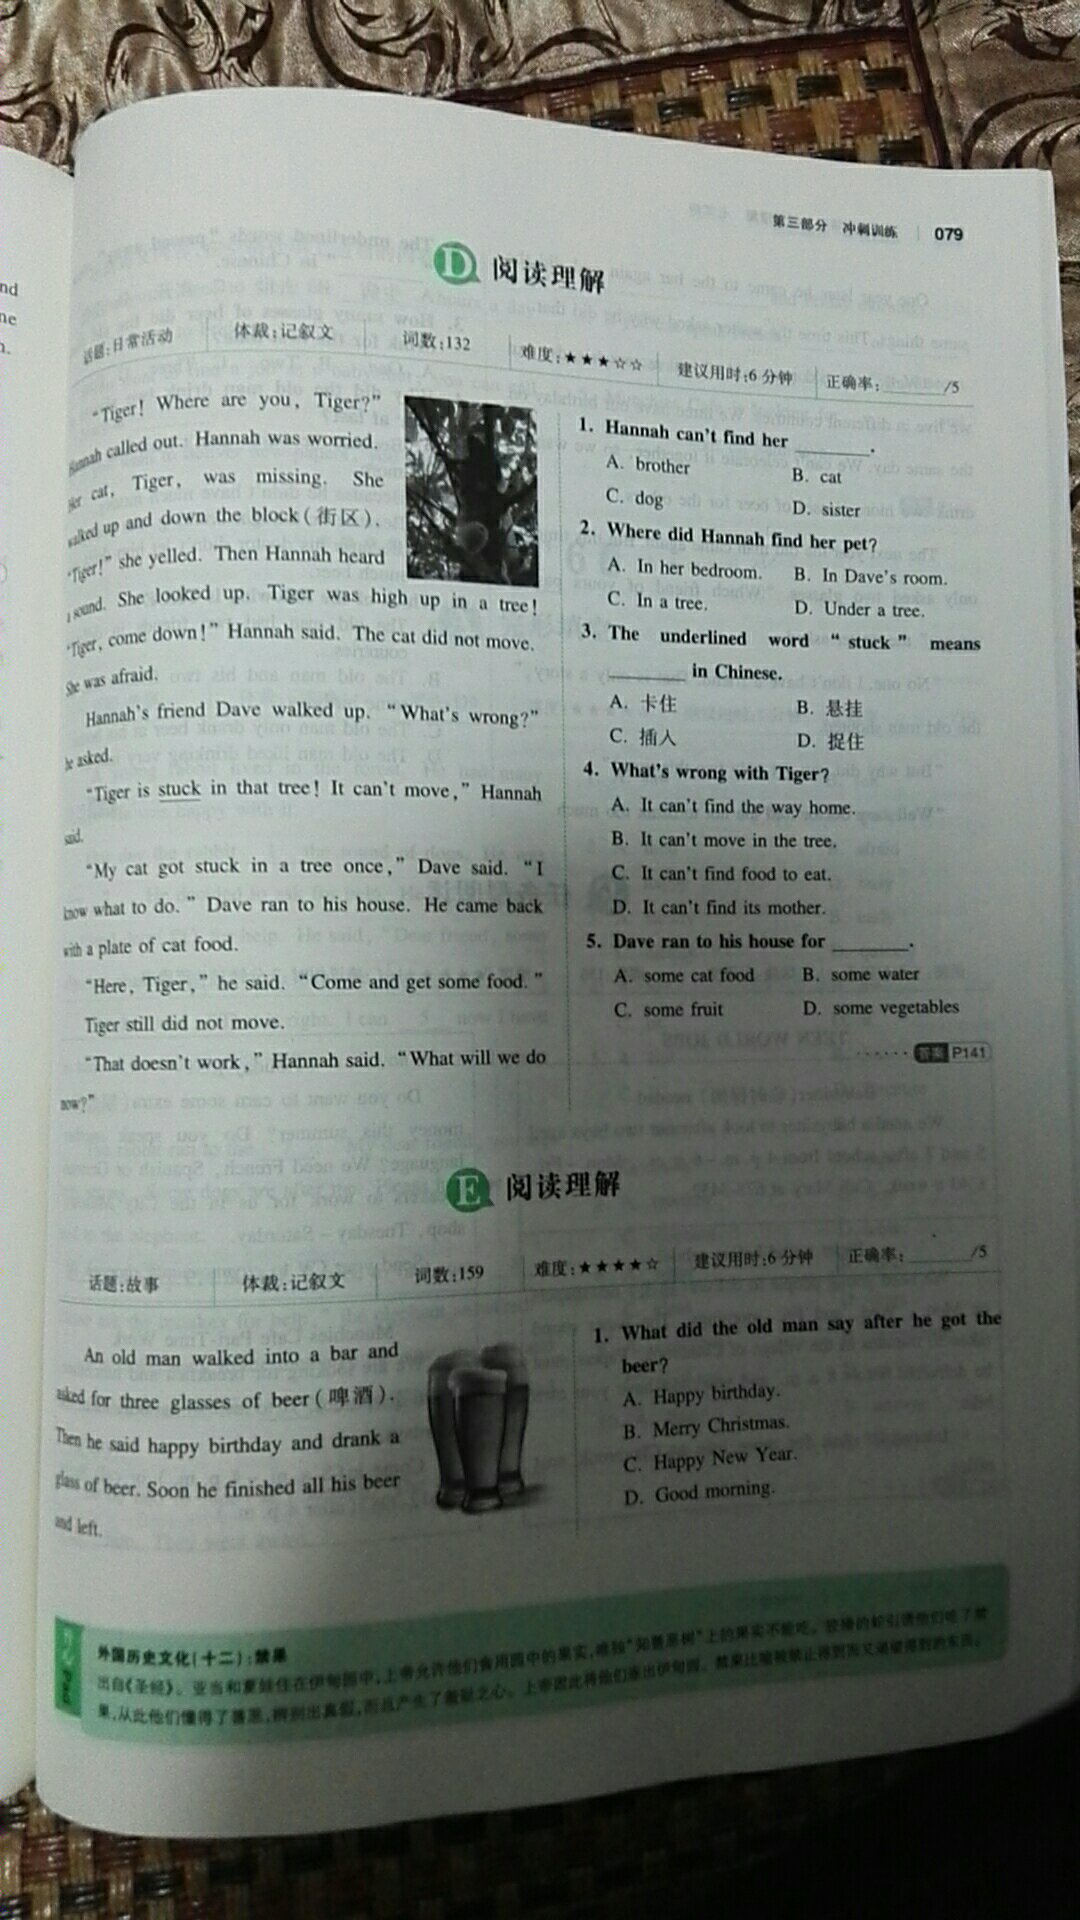 nd
ne
第三部分 冲刺训练 079
D 阅读理解
话题:日常活动 体裁:记叙文 词数:132 难度:★★★☆☆ 建议用时:6分钟 正确率:______/5
"Tiger! Where are you, Tiger?"
Hannah called out. Hannah was worried.
Her cat, Tiger, was missing. She
walked up and down the block(街区).
"Tiger!" she yelled. Then Hannah heard
a sound. She looked up. Tiger was high up in a tree!
"Tiger, come down!" Hannah said. The cat did not move.
She was afraid.
Hannah's friend Dave walked up. "What's wrong?"
he asked.
"Tiger is stuck in that tree! It can't move," Hannah
said.
"My cat got stuck in a tree once," Dave said. "I
know what to do." Dave ran to his house. He came back
with a plate of cat food.
"Here, Tiger," he said. "Come and get some food."
Tiger still did not move.
"That doesn't work," Hannah said. "What will we do
now?"
1. Hannah can't find her ________.
A. brother B. cat
C. dog D. sister
2. Where did Hannah find her pet?
A. In her bedroom. B. In Dave's room.
C. In a tree. D. Under a tree.
3. The underlined word "stuck" means
________ in Chinese.
A. 卡住 B. 悬挂
C. 插入 D. 捉住
4. What's wrong with Tiger?
A. It can't find the way home.
B. It can't move in the tree.
C. It can't find food to eat.
D. It can't find its mother.
5. Dave ran to his house for ________.
A. some cat food B. some water
C. some fruit D. some vegetables
······答案 P141
E 阅读理解
话题:故事 体裁:记叙文 词数:159 难度:★★★★☆ 建议用时:6分钟 正确率:______/5
An old man walked into a bar and
asked for three glasses of beer(啤酒).
Then he said happy birthday and drank a
glass of beer. Soon he finished all his beer
and left.
1. What did the old man say after he got the
beer?
A. Happy birthday.
B. Merry Christmas.
C. Happy New Year.
D. Good morning.
iPad
外国历史文化(十二):禁果
出自《圣经》。亚当和夏娃住在伊甸园中,上帝允许他们食用园中的果实,唯独"知善恶树"上的果实不能吃。狡猾的蛇引诱他们吃了禁
果,从此他们懂得了善恶,辨别出真假,而且产生了羞耻之心。上帝因此将他们逐出伊甸园。禁果比喻被禁止得到而又渴望得到的东西。